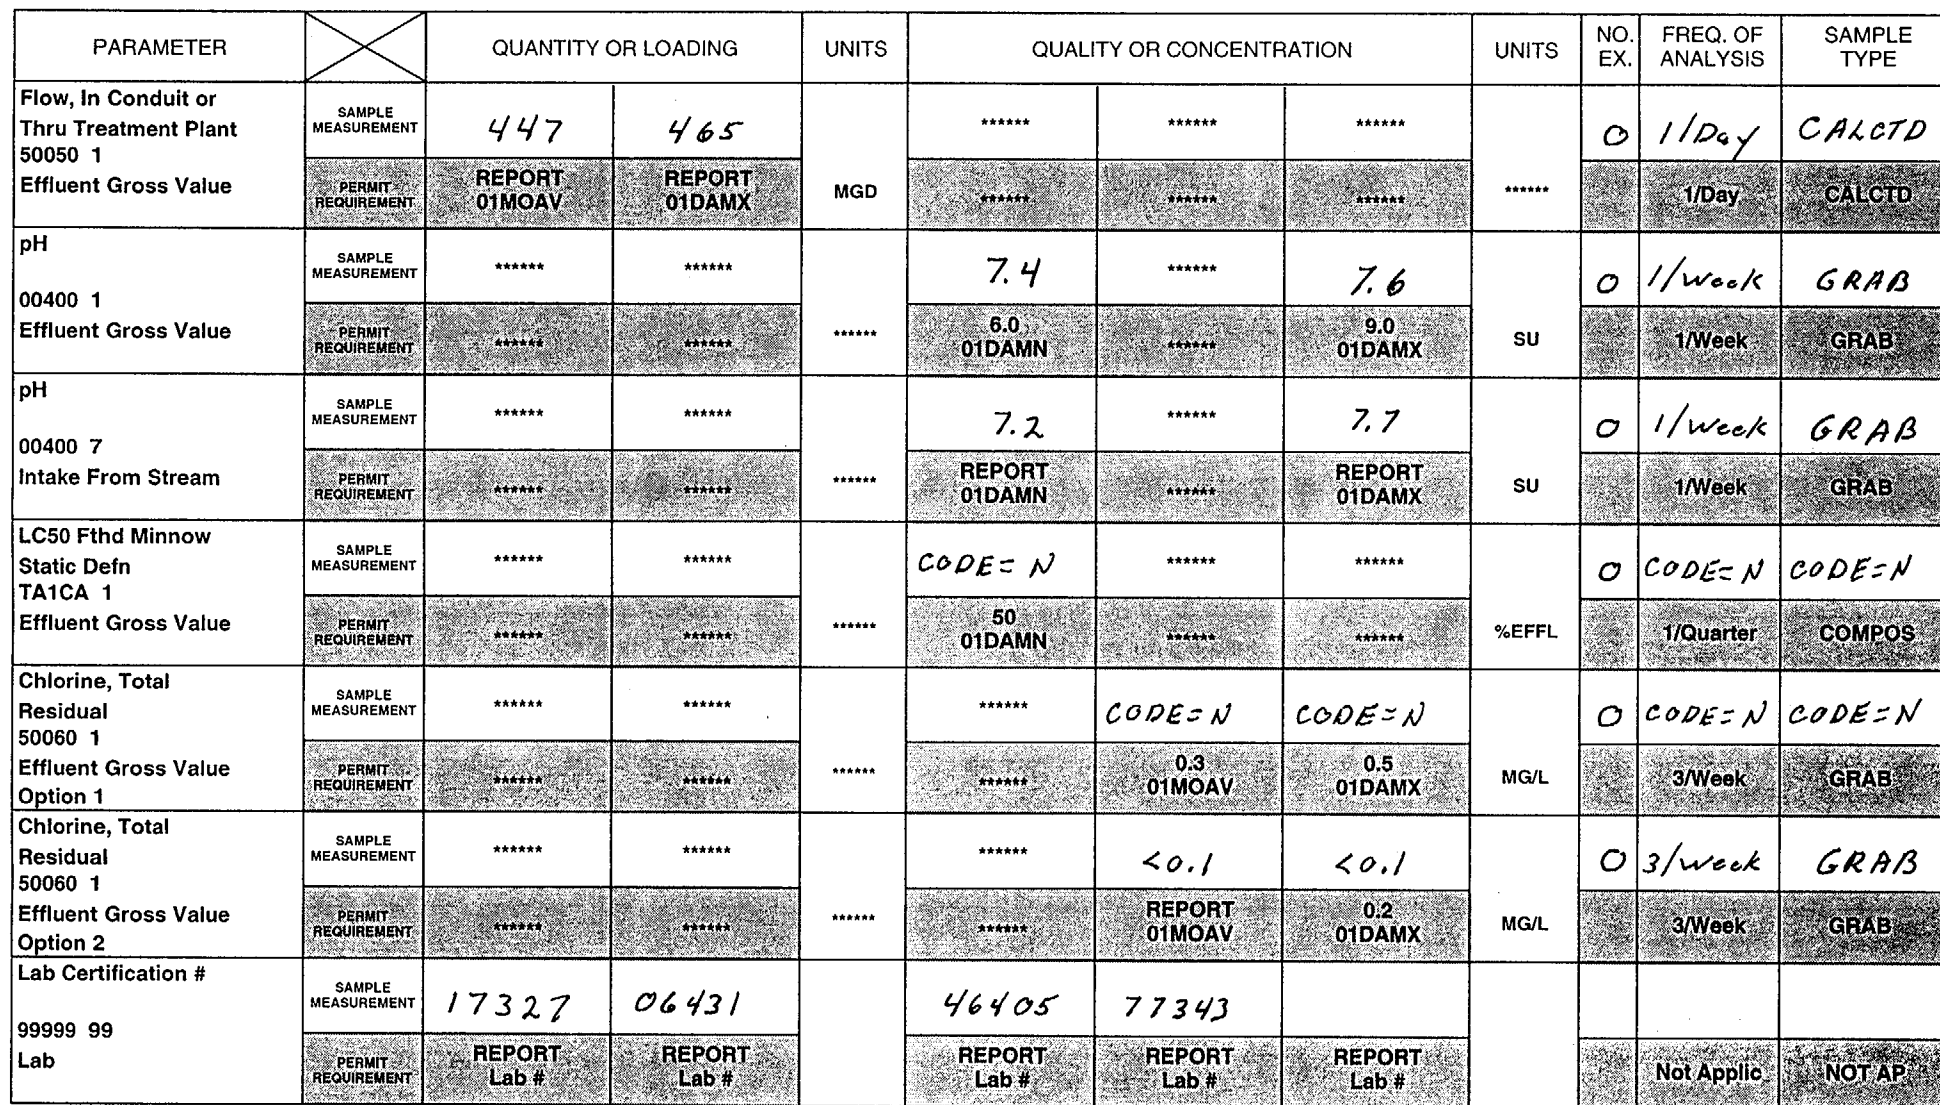 PARAMETER QUANTITY OR LOADING UNITS QUALITY OR CONCENTRATION UNITS NO. EX. FREQ. OF ANALYSIS SAMPLE TYPE
Flow, In Conduit or
Thru Treatment Plant
50050 1
Effluent Gross Value
SAMPLE MEASUREMENT 447 465 ****** ****** ****** 0 1/Day CALCTD
PERMIT REQUIREMENT REPORT 01MOAV REPORT 01DAMX MGD ****** ****** ****** ****** 1/Day CALCTD
pH
00400 1
Effluent Gross Value
SAMPLE MEASUREMENT ****** ****** 7.4 ****** 7.6 0 1/Week GRAB
PERMIT REQUIREMENT ****** ****** ****** 6.0 01DAMN ****** 9.0 01DAMX SU 1/Week GRAB
pH
00400 7
Intake From Stream
SAMPLE MEASUREMENT ****** ****** 7.2 ****** 7.7 0 1/Week GRAB
PERMIT REQUIREMENT ****** ****** ****** REPORT 01DAMN ****** REPORT 01DAMX SU 1/Week GRAB
LC50 Fthd Minnow
Static Defn
TA1CA 1
Effluent Gross Value
SAMPLE MEASUREMENT ****** ****** CODE=N ****** ****** 0 CODE=N CODE=N
PERMIT REQUIREMENT ****** ****** ****** 50 01DAMN ****** ****** %EFFL 1/Quarter COMPOS
Chlorine, Total
Residual
50060 1
Effluent Gross Value
Option 1
SAMPLE MEASUREMENT ****** ****** ****** CODE=N CODE=N 0 CODE=N CODE=N
PERMIT REQUIREMENT ****** ****** ****** ****** 0.3 01MOAV 0.5 01DAMX MG/L 3/Week GRAB
Chlorine, Total
Residual
50060 1
Effluent Gross Value
Option 2
SAMPLE MEASUREMENT ****** ****** ****** <0.1 <0.1 0 3/Week GRAB
PERMIT REQUIREMENT ****** ****** ****** ****** REPORT 01MOAV 0.2 01DAMX MG/L 3/Week GRAB
Lab Certification #
99999 99
Lab
SAMPLE MEASUREMENT 17327 06431 46405 77343
PERMIT REQUIREMENT REPORT Lab # REPORT Lab # REPORT Lab # REPORT Lab # REPORT Lab # Not Applic NOT AP